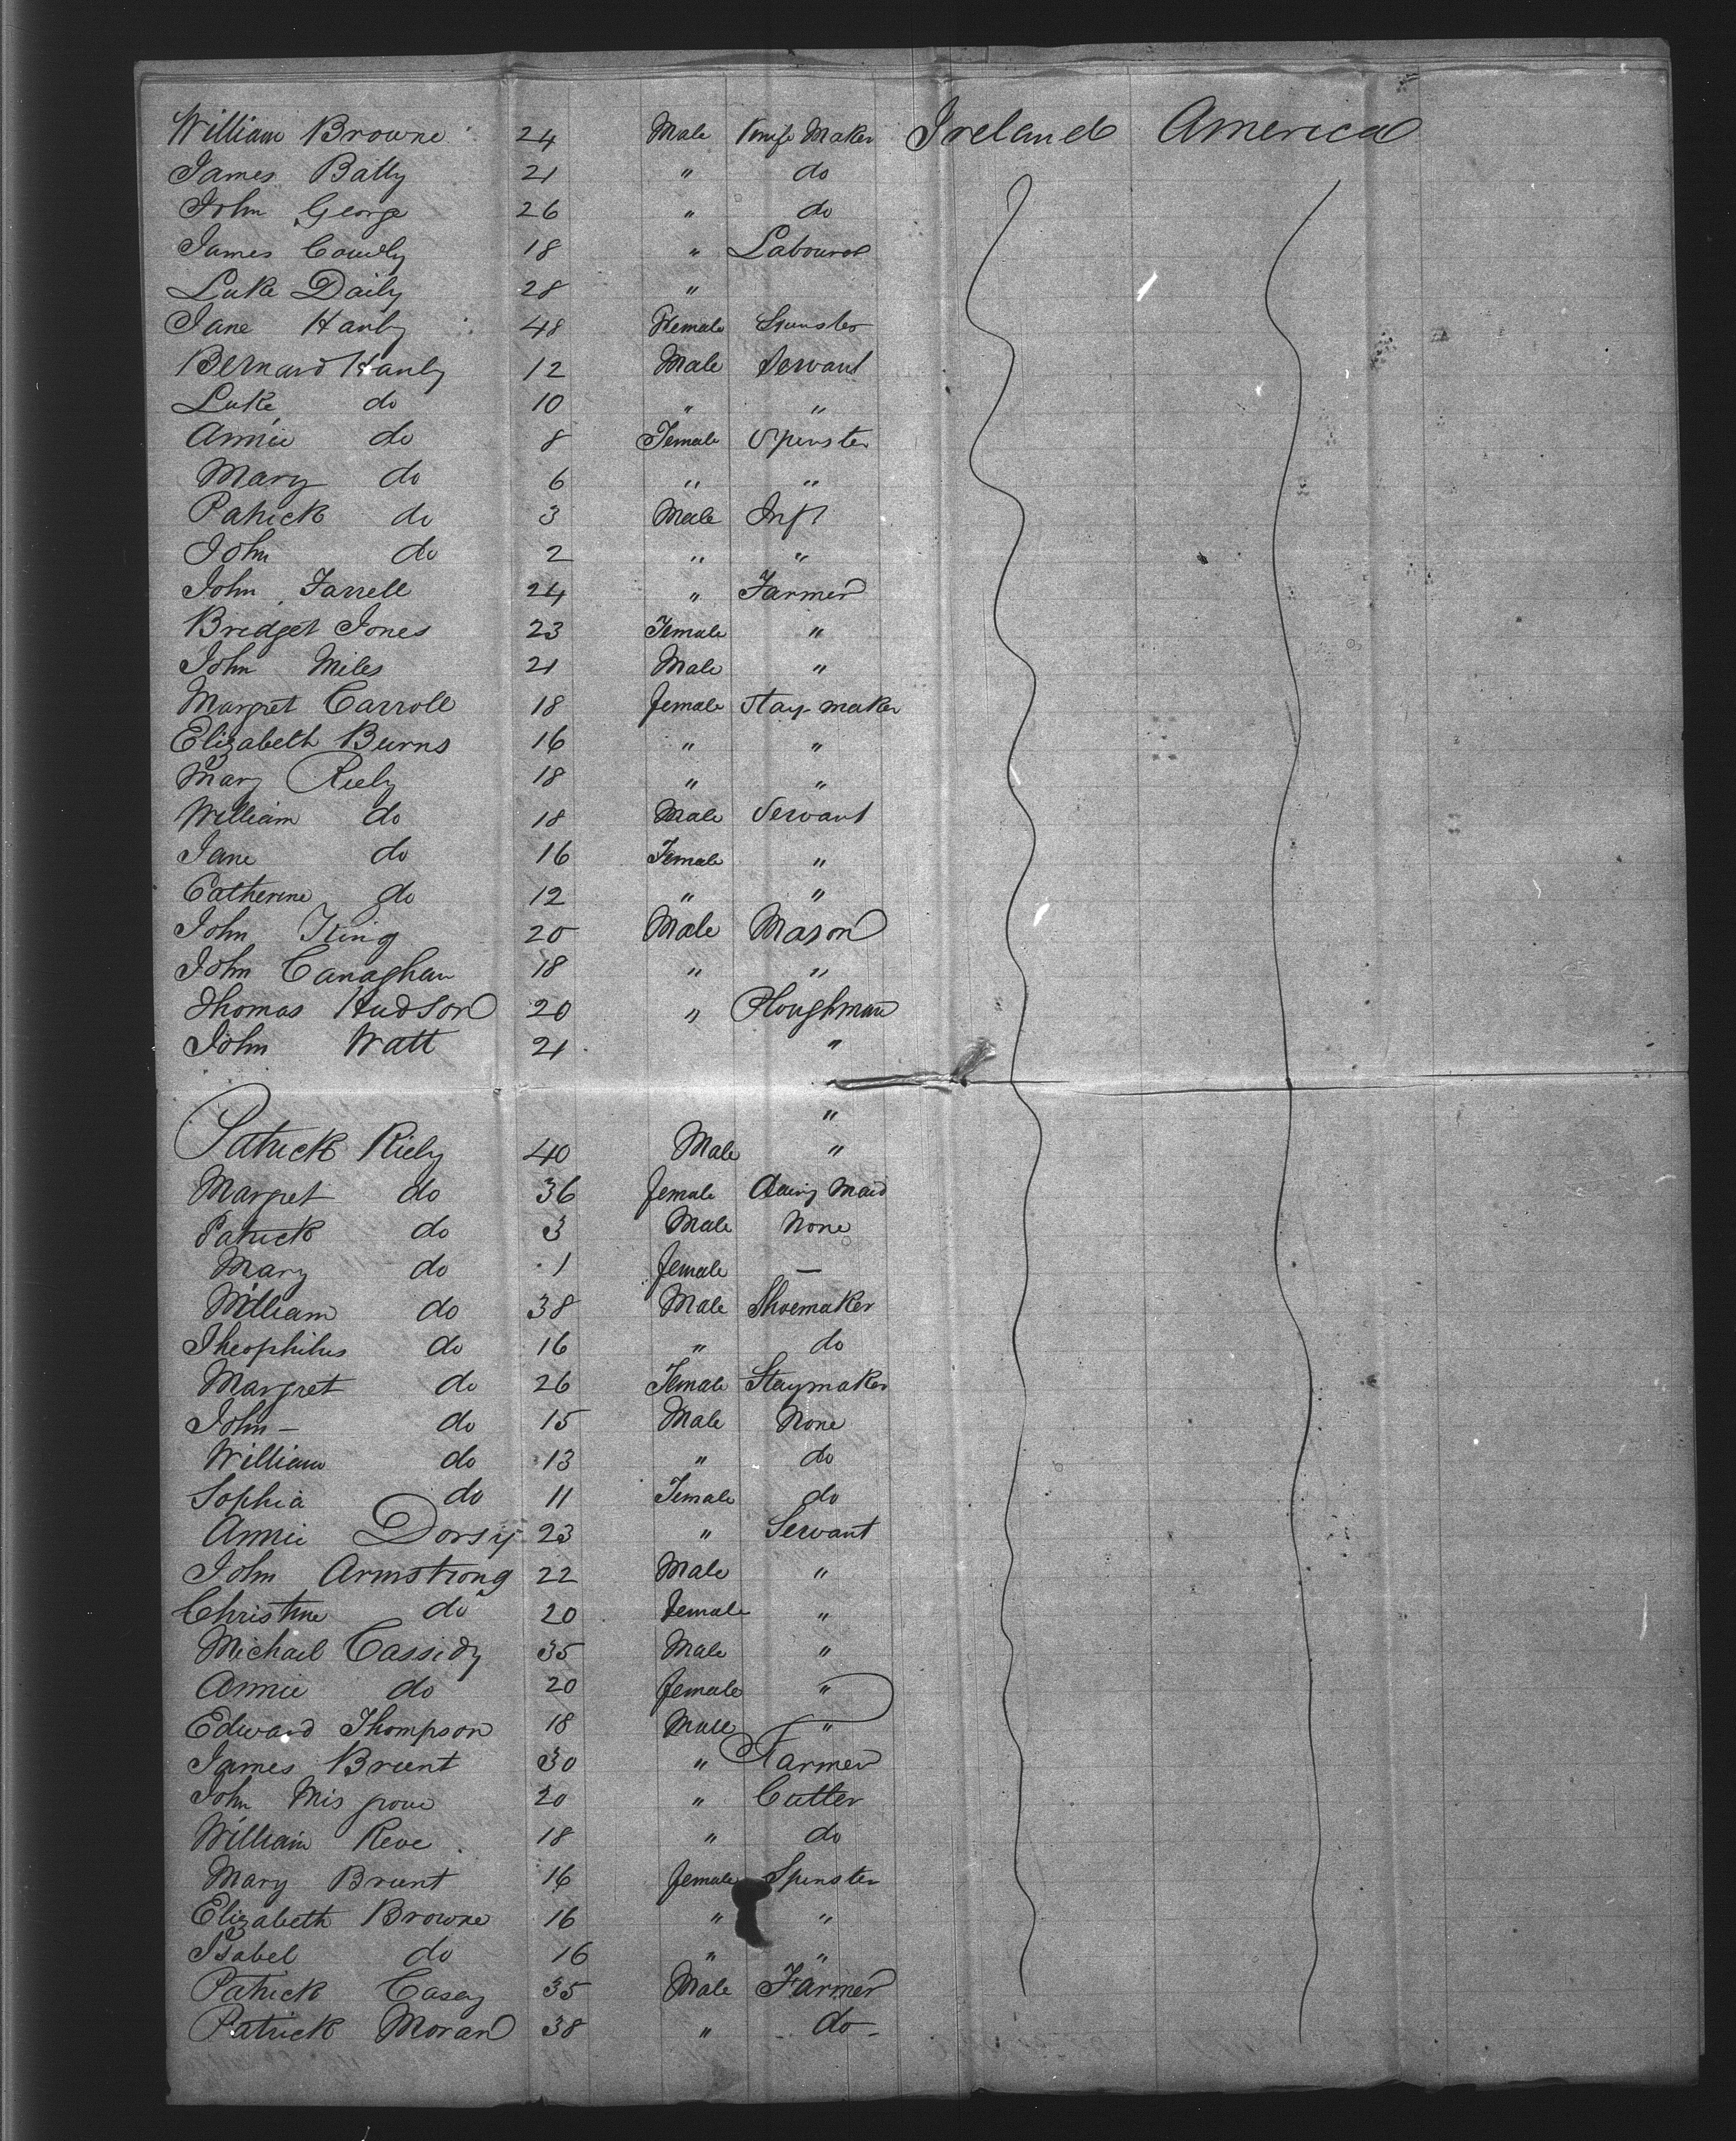 William Browne 24 Male Knife Maker Ireland America
James Batty 21 " do
John George 26 " do
James Cowdly 18 " Labourer
Luke Daily 28 "
Jane Hanly 48 Female Spinster
Bernard Hanly 12 Male Servant
Luke do 10 " "
Annie do 8 Female Spinster
Mary do 6 " "
Patrick do 3 Male Inft
John do 2 " "
John Farrell 24 " Farmer
Bridget Jones 23 Female "
John Miles 21 Male "
Margret Carroll 18 female Stay-maker
Elizabeth Burns 16 " "
Mary Riely 18 " "
William do 18 Male Servant
Jane do 16 Female "
Catherine do 12 " "
John King 20 Male Mason
John Canaghan 18 " "
Thomas Hudson 20 " Ploughman
John Watt 21 "
"
Patrick Riely 40 Male "
Margret do 36 female Dairy Maid
Patrick do 3 Male None
Mary do 1 female —
William do 38 Male Shoemaker
Theophilus do 16 " do
Margret do 26 Female Staymaker
John - do 15 Male None
William do 13 " do
Sophia do 11 Female do
Annie Dorsy 23 " Servant
John Armstrong 22 Male "
Christine do 20 female "
Michael Cassidy 35 Male "
Annie do 20 female "
Edward Thompson 18 Male "
James Brunt 30 " Farmer
John Misgrove 20 " Cutter
William Reve 18 " do
Mary Brunt 16 female Spinster
Elizabeth Browne 16 " "
Isabel do 16 " "
Patrick Casey 35 Male Farmer
Patrick Moran 38 " do